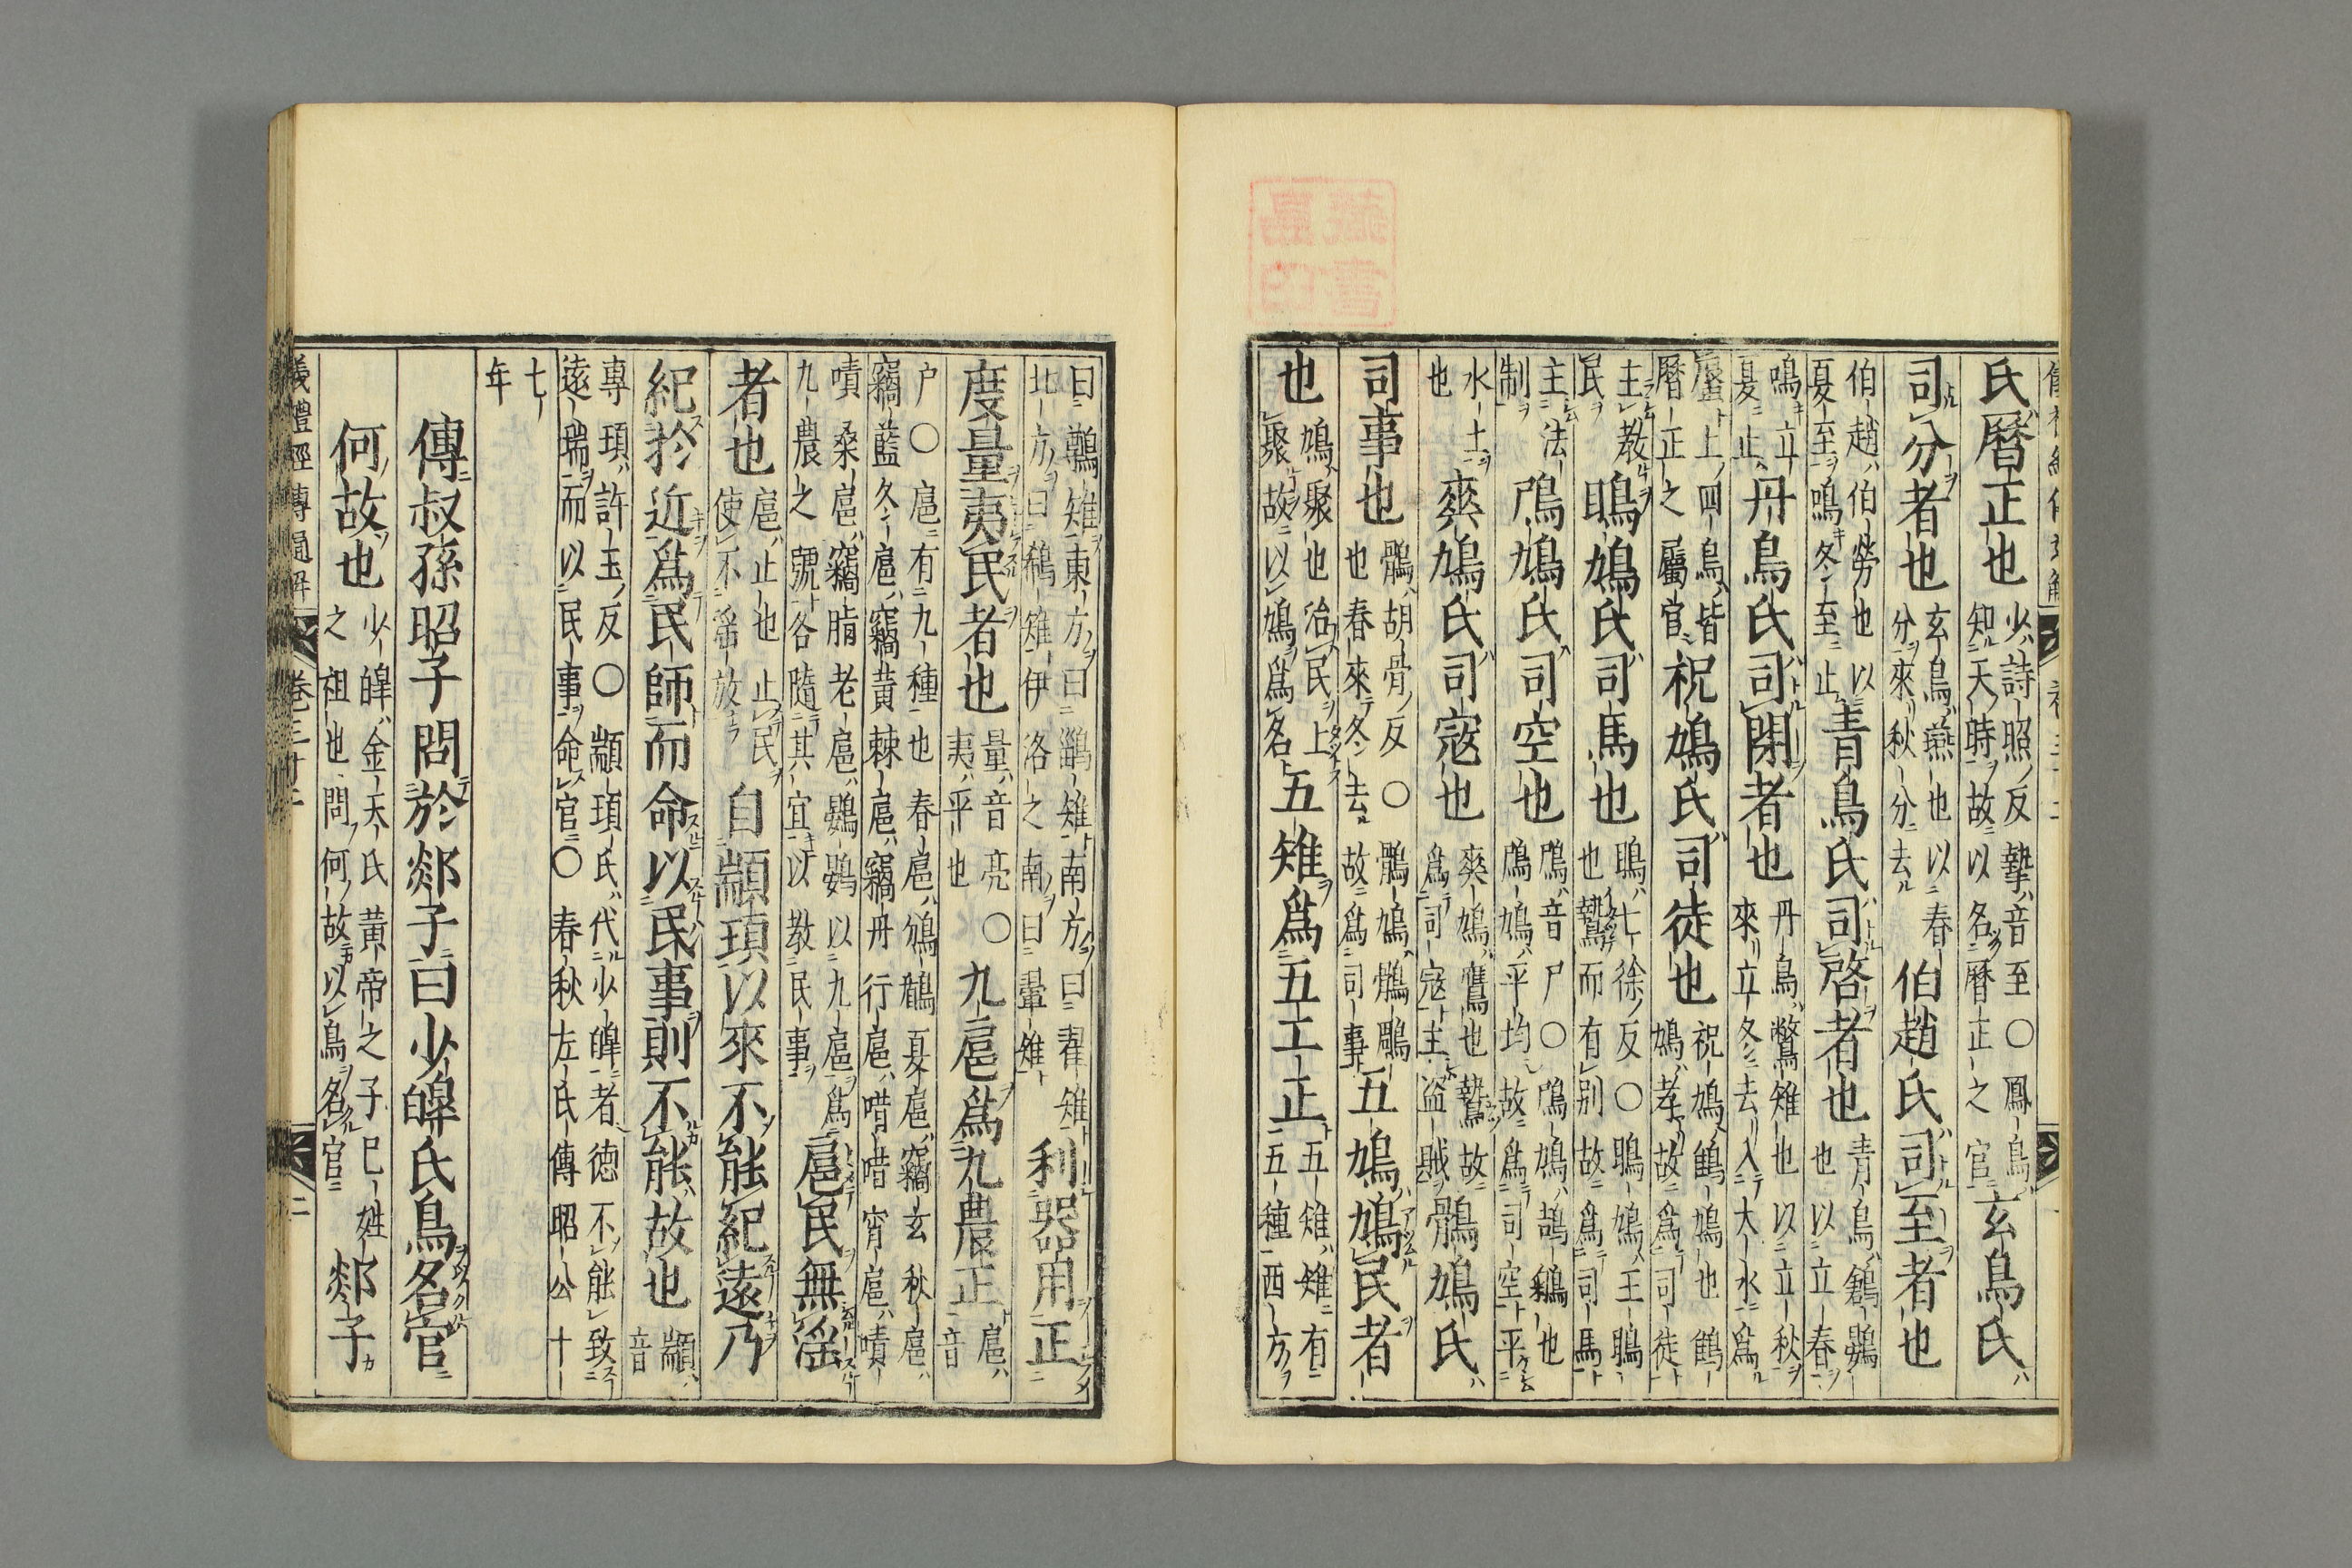 氏曆正也 少詩照反摯音至〇鳳鳥知天時故以名曆正之官 玄鳥氏
司分者也 玄鳥燕也以春分來秋分去 伯趙氏司至者也
伯趙伯勞也以夏至鳴冬至止 青鳥氏司啓者也 青鳥鶬鷃也以立春
鳴立夏止 丹鳥氏司閉者也 丹鳥鷩雉也以立秋來立冬去入大水爲
蜃上四鳥皆曆正之屬官 祝鳩氏司徒也 祝鳩鷦鳩也鷦鳩孝故爲司徒
主教民 鴡鳩氏司馬也 鴡七徐反〇鴡鳩王鴡也鷙而有別故爲司馬
主法制 鳲鳩氏司空也 鳲音尸〇鳲鳩鵠鵴也鳲鳩平均故爲司空平
水土也 爽鳩氏司寇也 爽鳩鷹也鷙故爲司寇主盜賊 鶻鳩氏
司事也 鶻胡骨反〇鶻鳩鶻鵰也春來冬去故爲司事 五鳩鳩民者
也 鳩聚也治民上聚故以鳩爲名 五雉爲五工正 五雉雉有五種西方
曰鷷雉東方曰鶅雉南方曰翟雉北方曰鵗雉伊洛之南曰翬雉 利器用正
度量夷民者也 量音亮〇夷平也 九扈爲九農正 扈音
戶〇扈有九種也春扈鳻鶞夏扈竊玄秋扈竊藍冬扈竊黃棘扈竊丹行扈唶唶宵扈嘖
嘖桑扈竊脂老扈鷃鷃以九扈爲九農之號各隨其宜以教民事 扈民無淫
者也 扈止也止民使不淫放 自顓頊以來不能紀遠乃
紀於近爲民師而命以民事則不能故也 顓音
專頊許玉反〇顓頊氏代少皞者德不能致遠瑞而以民事命官〇春秋左氏傳昭公十
七年
傳叔孫昭子問於郯子曰少皞氏鳥名官
何故也 少皞金天氏黃帝之子己姓之祖也問何故以鳥名官 郯子
儀禮經傳通解 卷三十二 二